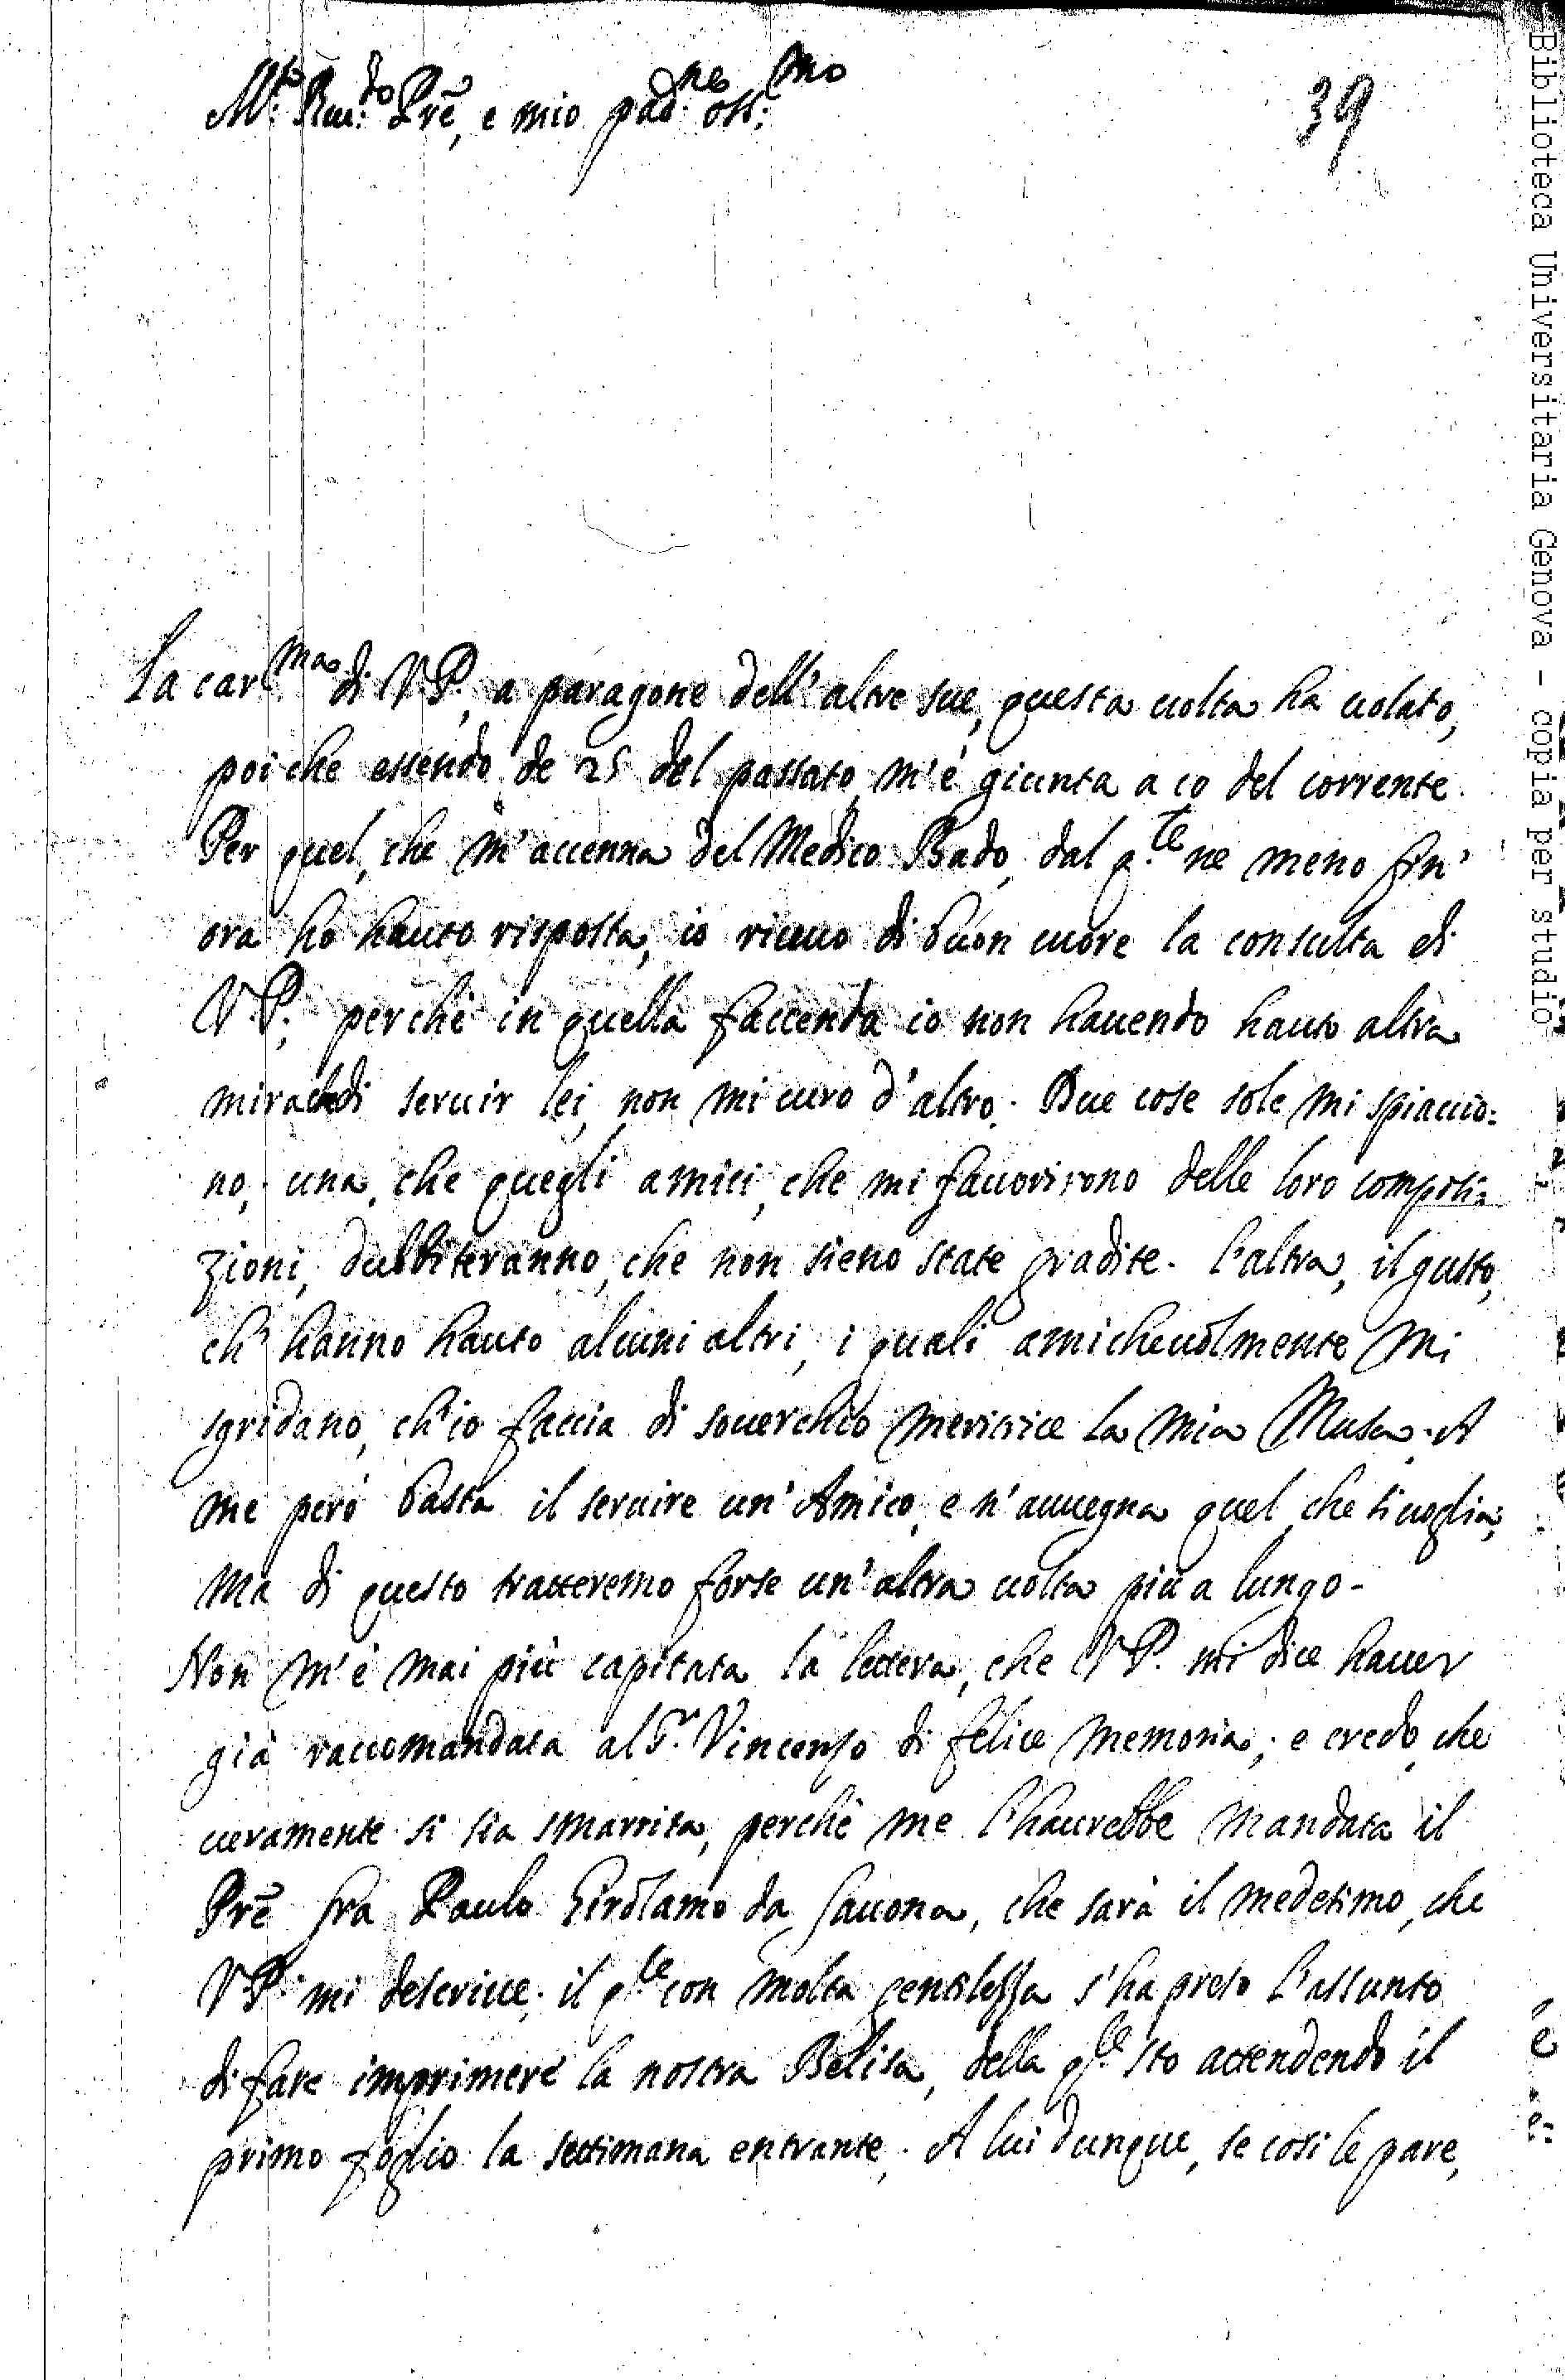 39
M.to Rev:do Prẽ, e mio pad:ne oss:mo
La car.ma di V.P., a paragone dell'altre sue, questa uolta ha uolato,
poi che essendo de 25 del passato m'è giunta a 10 del corrente.
Per quel, che m'accenna del Medico Bado, dal q.le ne meno fin'
ora ho hauto risposta, io riceuo di buon cuore la consulta di
V.P.; perchè in quella faccenda io non hauendo hauto altra
mira che di seruir lei, non mi curo d'altro. Due cose sole mi spiaccio:
no, una, che quegli amici, che mi fauorirono delle loro composi:
zioni, dubbiteranno, che non sieno state gradite. L'altra, il gusto,
ch'hanno hauto alcuni altri, i quali amicheuolmente mi
sgridano, ch'io faccia di souerchio meritrice la mia Musa. A
me però basta il seruire un'Amico, e n'auuegna quel, che si uoglia;
Ma di questo tratteremo forse un'altra uolta più a lungo.
Non m'è mai più capitata la lettera, che V.P. mi dice hauer
già raccomandata al S.r Vincenzo di felice memoria; e credo, che
ueramente si sia smarrita, perchè me l'haurebbe mandata il
Prẽ fra Paulo Girolamo da Sauona, che sarà il medesimo, che
V.P. mi descriue; il q.le con molta gentilezza s'ha preso l'assunto
di fare imprimere la nostra Belisa, della q.le sto attendendo il
primo foglio la settimana entrante. A lui dunque, se così le pare,
Biblioteca Universitaria Genova - copia per studio